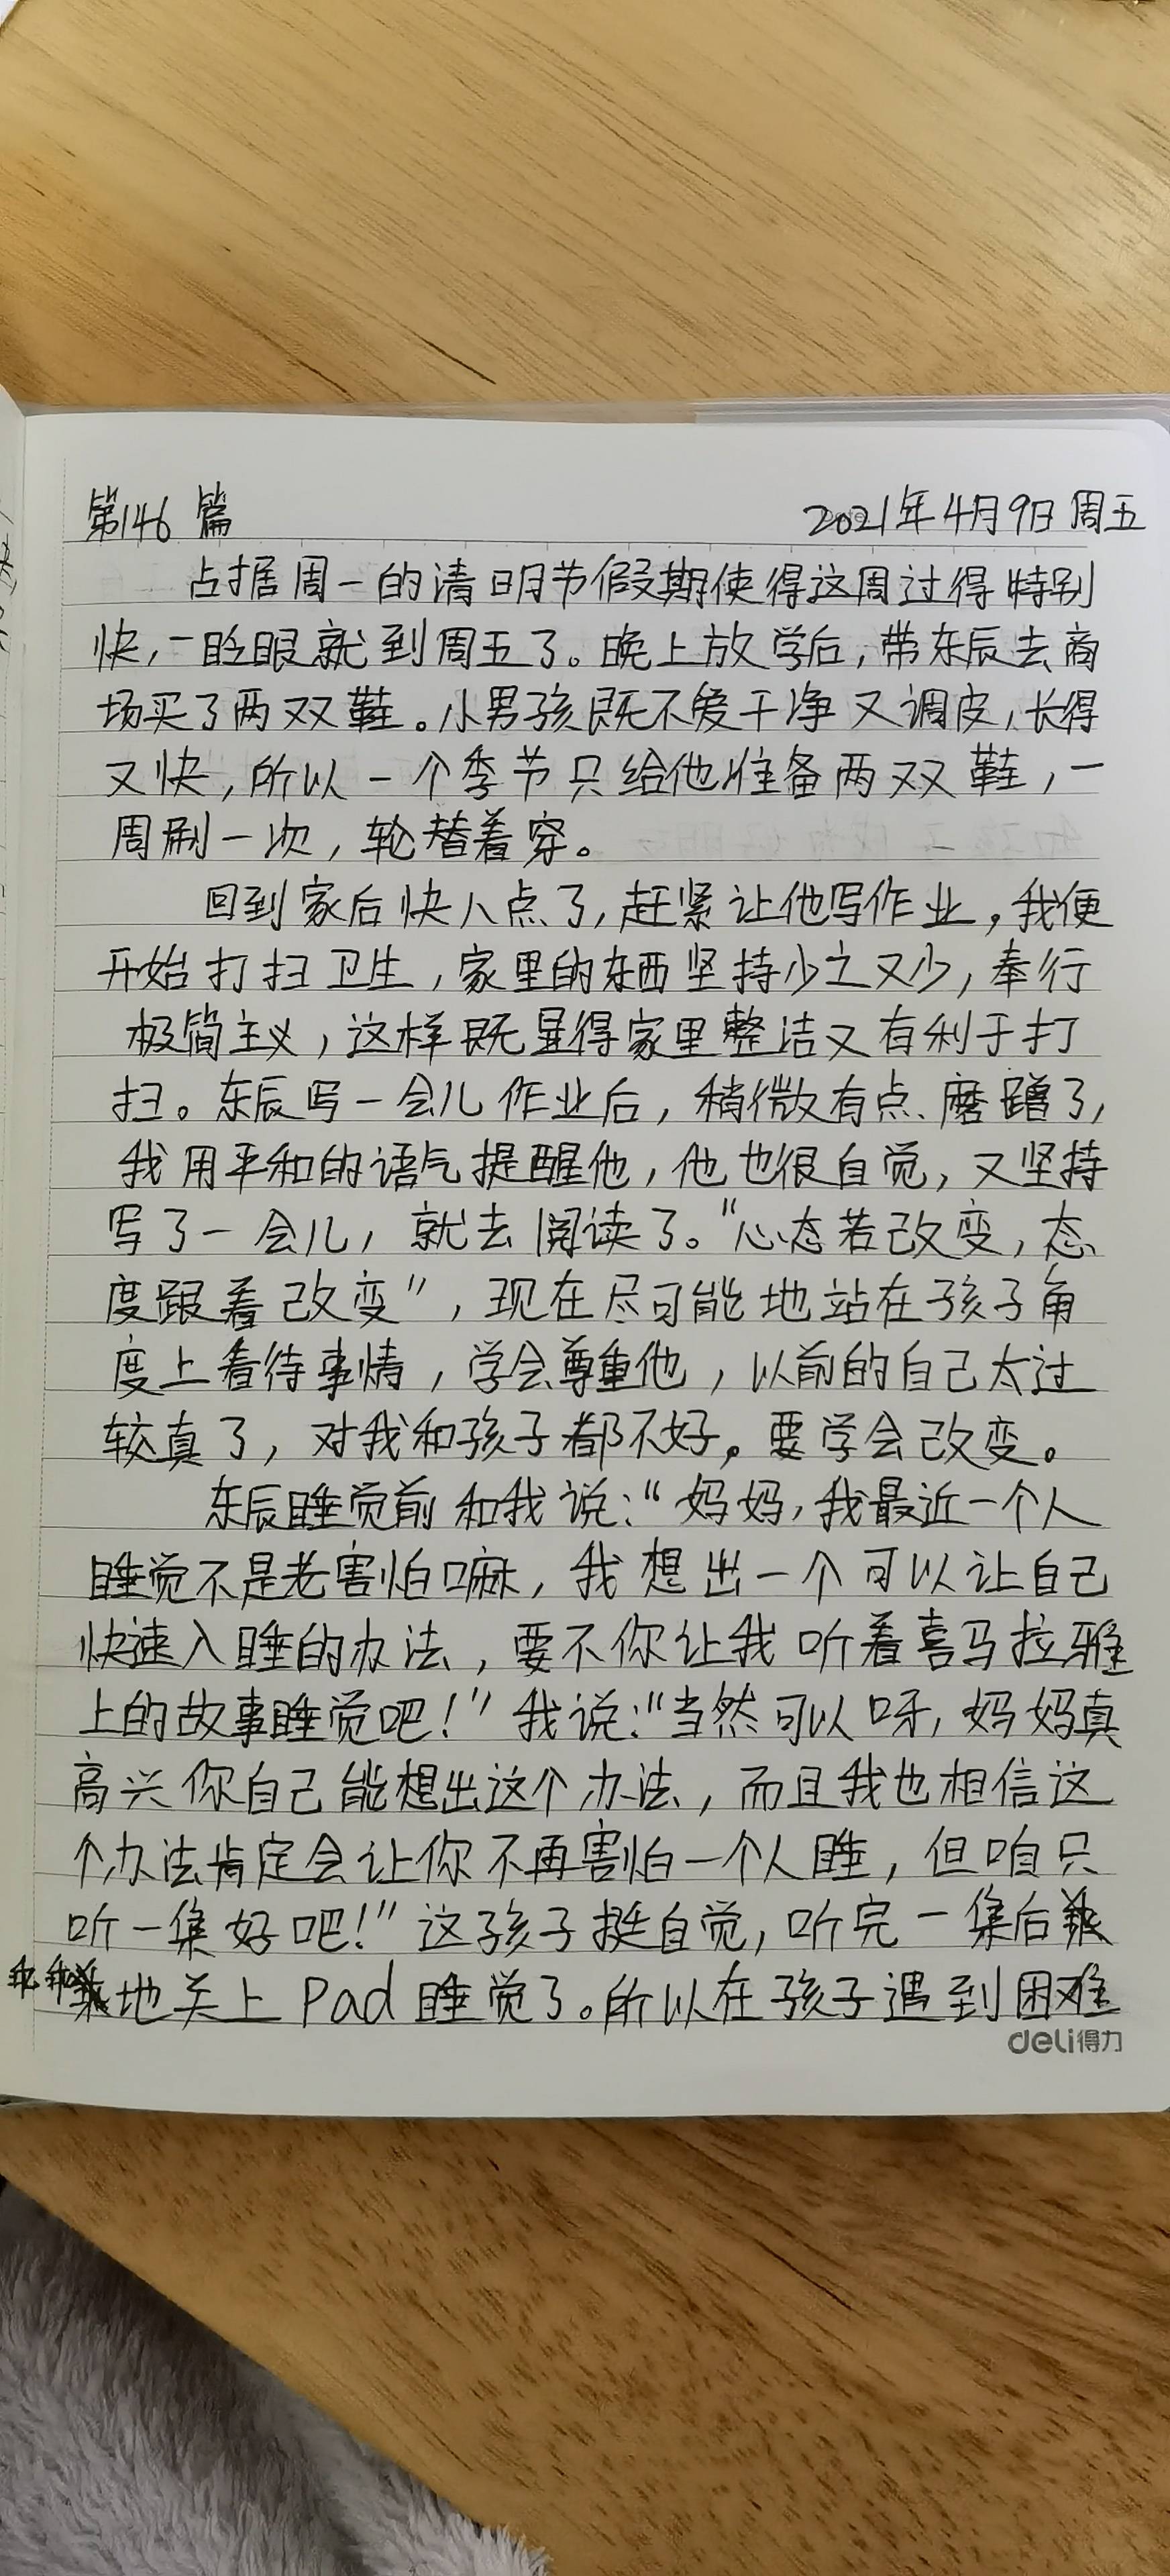 第146篇 2021年4月9日周五
占据周一的清明节假期使得这周过得特别
快,一眨眼就到周五了。晚上放学后,带东辰去商
场买了两双鞋。小男孩既不爱干净又调皮,长得
又快,所以一个季节只给他准备两双鞋,一
周刷一次,轮替着穿。
回到家后快八点了,赶紧让他写作业,我便
开始打扫卫生,家里的东西坚持少之又少,奉行
极简主义,这样既显得家里整洁又有利于打
扫。东辰写一会儿作业后,稍微有点磨蹭了,
我用平和的语气提醒他,他也很自觉,又坚持
写了一会儿,就去阅读了。"心态若改变,态
度跟着改变",现在尽可能地站在孩子角
度上看待事情,学会尊重他,以前的自己太过
较真了,对我和孩子都不好。要学会改变。
东辰睡觉前和我说:"妈妈,我最近一个人
睡觉不是老害怕嘛,我想出一个可以让自己
快速入睡的办法,要不你让我听着喜马拉雅
上的故事睡觉吧!"我说:"当然可以呀,妈妈真
高兴你自己能想出这个办法,而且我也相信这
个办法肯定会让你不再害怕一个人睡,但咱只
听一集好吧!"这孩子挺自觉,听完一集后
乖乖地关上Pad睡觉了。所以在孩子遇到困难
deli得力